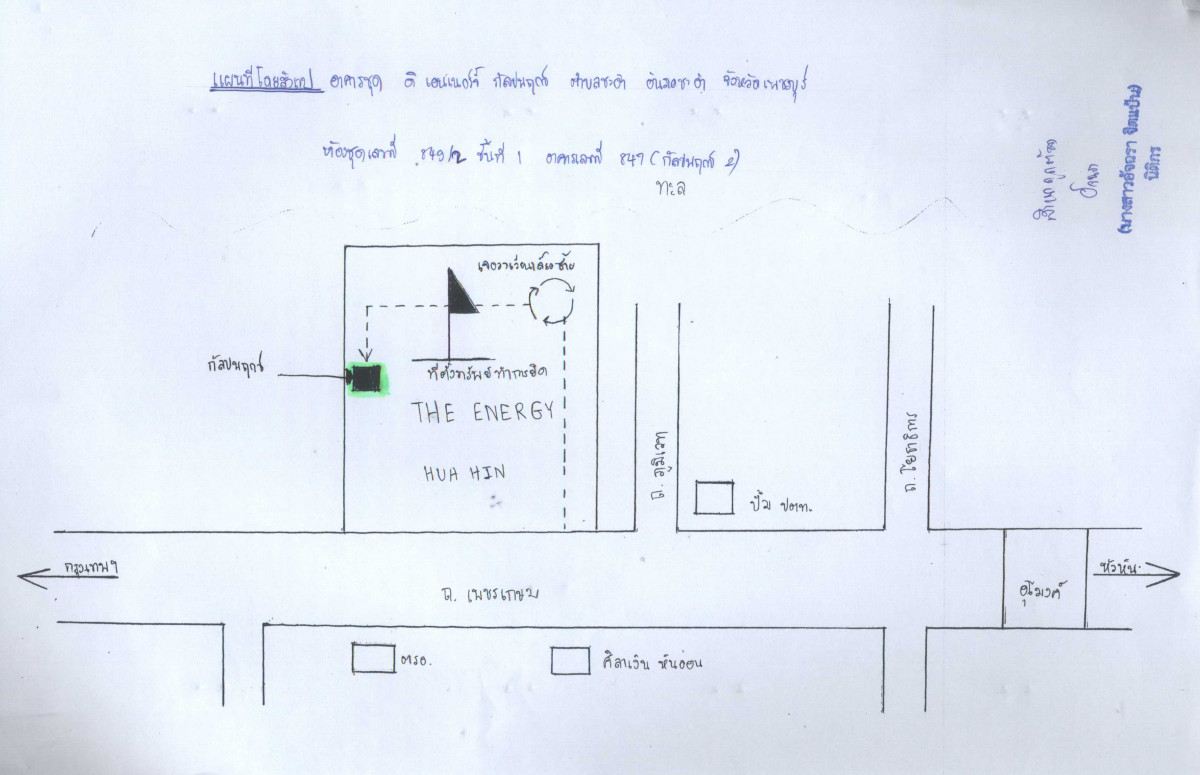 แผนที่โดยสังเขป อาคารชุด ดิ เอนเนอร์จี้ กัลปพฤกษ์ ตำบลชะอำ อำเภอชะอำ จังหวัดเพชรบุรี
ห้องชุดเลขที่ 849/2 ชั้นที่ 1 อาคารเลขที่ 847 (กัลปพฤกษ์ 2)
ทะเล
สำเนาถูกต้อง
(นางสาวอัจฉรา จิตแป้น)
นิติกร
เลี้ยวซ้าย
กัลปพฤกษ์
ที่ตั้งทรัพย์ทำการยึด
THE ENERGY
HUA HIN
ถ. ภูมิเวท
ถ. โยธาธิการ
ปั๊ม ปตท.
กรุงเทพฯ
ถ. เพชรเกษม
อุโมงค์
หัวหิน
ตรอ.
ศิลาเงิน หินอ่อน